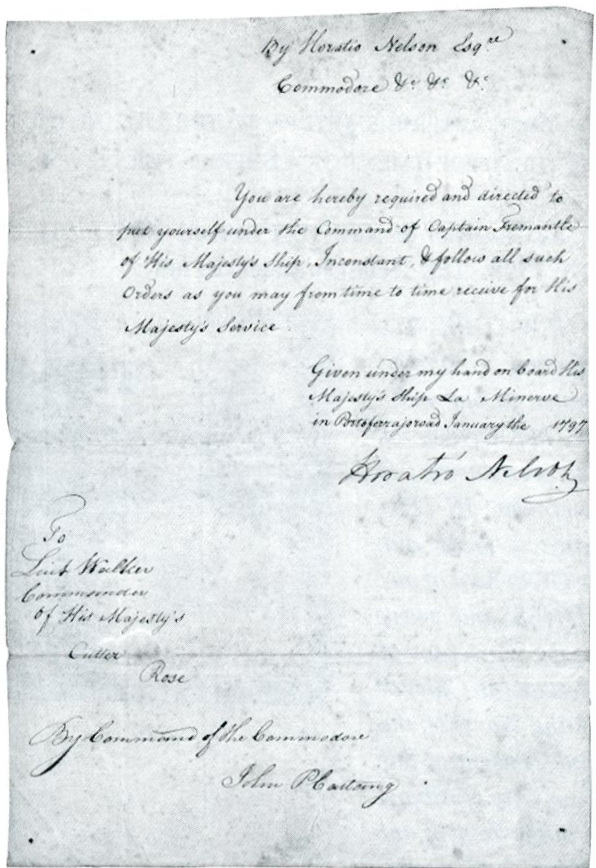 By Horatio Nelson Esqre
Commodore &c &c &c
You are hereby required and directed to
put yourself under the Command of Captain Fremantle
of His Majesty's Ship, Inconstant, & follow all such
Orders as you may from time to time receive for His
Majesty's Service.
Given under my hand on board His
Majesty's Ship La Minerve
in Portoferrajo road January the 1797
Horatio Nelson
To
Lieut Walker
Commander
of His Majesty's
Cutter
Rose
By Command of the Commodore
John P Castang